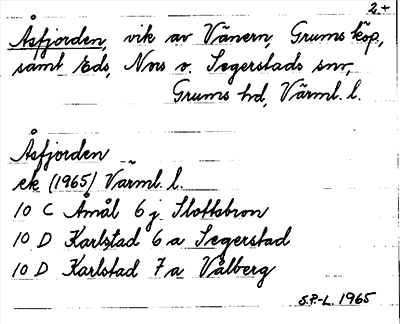 2+
Åsfjorden, vik av Vänern, Grums köp,
samt Eds, Nors o. Segerstads snr,
Grums hd, Värml. l.
Åsfjorden
ek (1965) Värml. l.
10 C Åmål 6 j Slottsbron
10 D Karlstad 6 a Segerstad
10 D Karlstad 7 a Vålberg
S.P-L. 1965